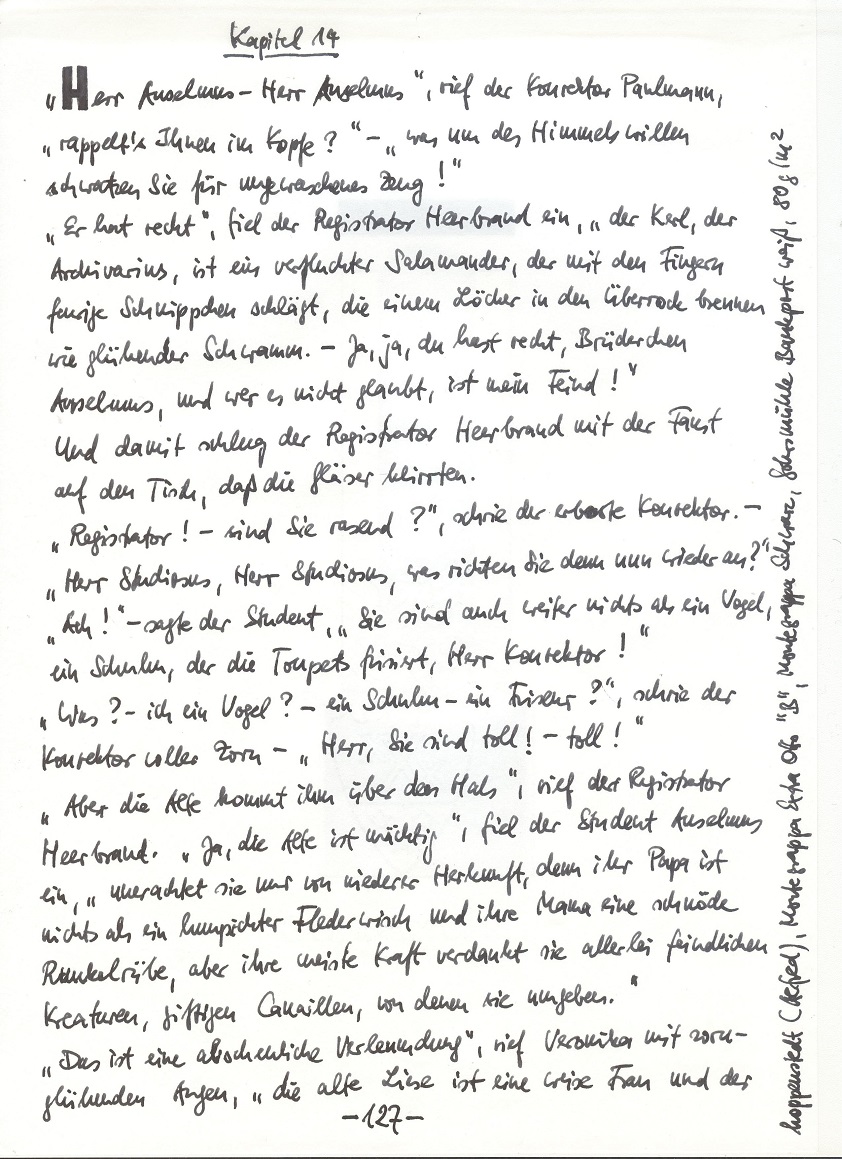 Kapitel 14
„Herr Anselmus – Herr Anselmus“, rief der Konrektor Paulmann,
„rappelt's Ihnen im Kopfe?“ – „was um des Himmels willen
schwatzen Sie für ungewaschenes Zeug!“
„Er hat recht“, fiel der Registrator Heerbrand ein, „der Kerl, der
Archivarius, ist ein verfluchter Salamander, der mit den Fingern
feurige Schnippchen schlägt, die einem Löcher in den Überrock brennen
wie glühender Schwamm. – Ja, ja, du hast recht, Brüderchen
Anselmus, und wer es nicht glaubt, ist mein Feind!“
Und damit schlug der Registrator Heerbrand mit der Faust
auf den Tisch, daß die Gläser klirrten.
„Registrator! – sind Sie rasend?“, schrie der erboste Konrektor. –
„Herr Studiosus, Herr Studiosus, was richten Sie denn nun wieder an?“
„Ach!“ – sagte der Student, „Sie sind auch weiter nichts als ein Vogel,
ein Schuhu, der die Toupets frisiert, Herr Konrektor!“
„Was? – ich ein Vogel? – ein Schuhu – ein Friseur?“, schrie der
Konrektor voller Zorn – „Herr, Sie sind toll! – toll!“
„Aber die Alte kommt ihm über den Hals“, rief der Registrator
Heerbrand. „Ja, die Alte ist mächtig“, fiel der Student Anselmus
ein, „unerachtet sie nur von niederer Herkunft, denn ihr Papa ist
nichts als ein lumpichter Flederwisch und ihre Mama eine schnöde
Runkelrübe, aber ihre meiste Kraft verdankt sie allerlei feindlichen
Kreaturen, giftigen Canaillen, von denen sie umgeben.“
„Das ist eine abscheuliche Verleumdung“, rief Veronika mit zorn-
glühenden Augen, „die alte Liese ist eine weise Frau und der
–127–
hoppenstedt (Alfred), Montegrappa Extra Otto "B", Montegrappa Schwarz, Gohrsmühle Bankpost weiß, 80 g/m²